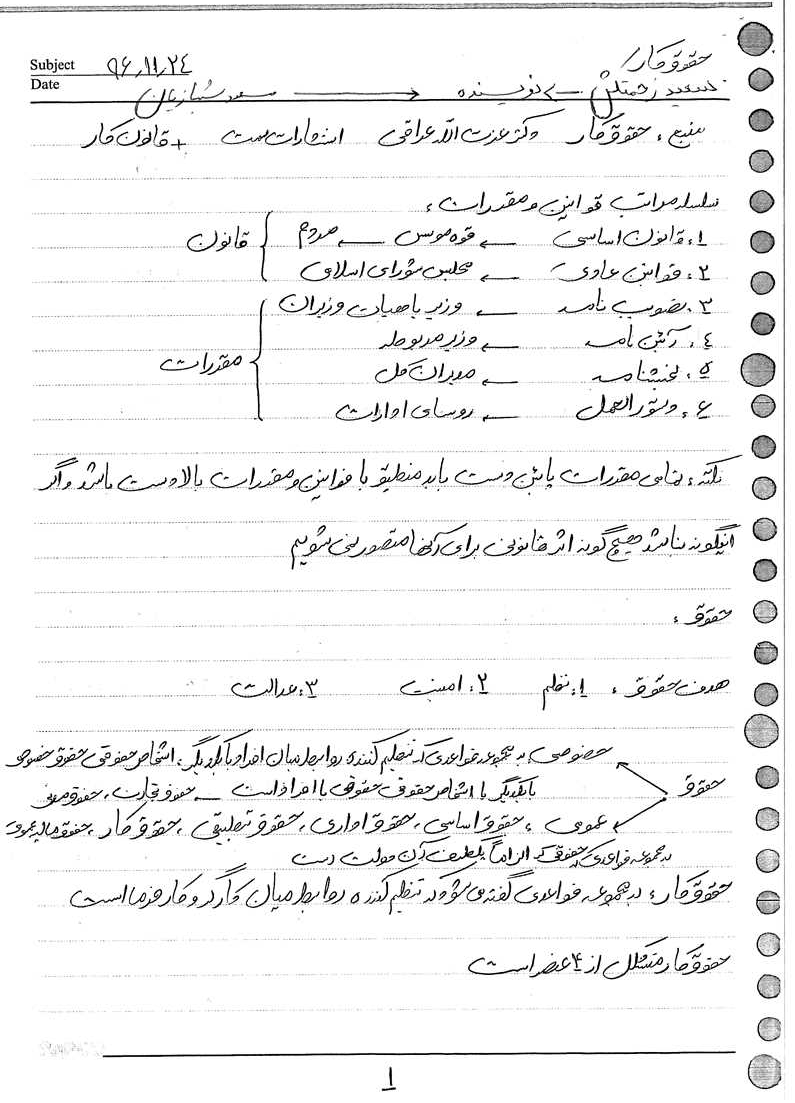 حقوق کار
Subject ۹۶,۱۱,۲۴
Date
سعید زحمتکش ← نویسنده ← سعید شهبازیان
منبع: حقوق کار دکتر عزت الله عراقی انتشارات سمت + قانون کار
سلسله مراتب قوانین و مقررات:
۱: قانون اساسی ← قوه موسس ← مردم } قانون
۲: قوانین عادی ← مجلس شورای اسلامی
۳. تصویب نامه ← وزیر یا هیات وزیران
۴: آئین نامه ← وزیر مربوطه
۵: بخشنامه ← مدیران کل } مقررات
۶: دستورالعمل ← روسای ادارات
نکته: تمامی مقررات پائین دست باید منطبق با قوانین و مقررات بالادست باشد و اگر
اینگونه نباشد هیچ گونه اثر قانونی برای آنها متصور نمی شویم
حقوق:
هدف حقوق: ۱: نظم ۲: امنیت ۳: عدالت
خصوصی به مجموعه قواعدی که تنظیم کننده روابط میان افراد با یکدیگر، اشخاص حقوقی حقوق خصوصی
حقوق
با یکدیگر یا اشخاص حقوقی حقوقی با افراد است ← حقوق تجارت، حقوق مدنی
عمومی: حقوق اساسی، حقوق اداری، حقوق تطبیقی، حقوق کار، حقوق مالیه عمومی
به مجموعه قواعدی که حقوقی که الزاماً یک طرف آن دولت است
حقوق کار: به مجموعه قواعدی گفته می شود که تنظیم کننده روابط میان کارگر و کارفرما است
حقوق کار متشکل از ۴ عنصر است
۱